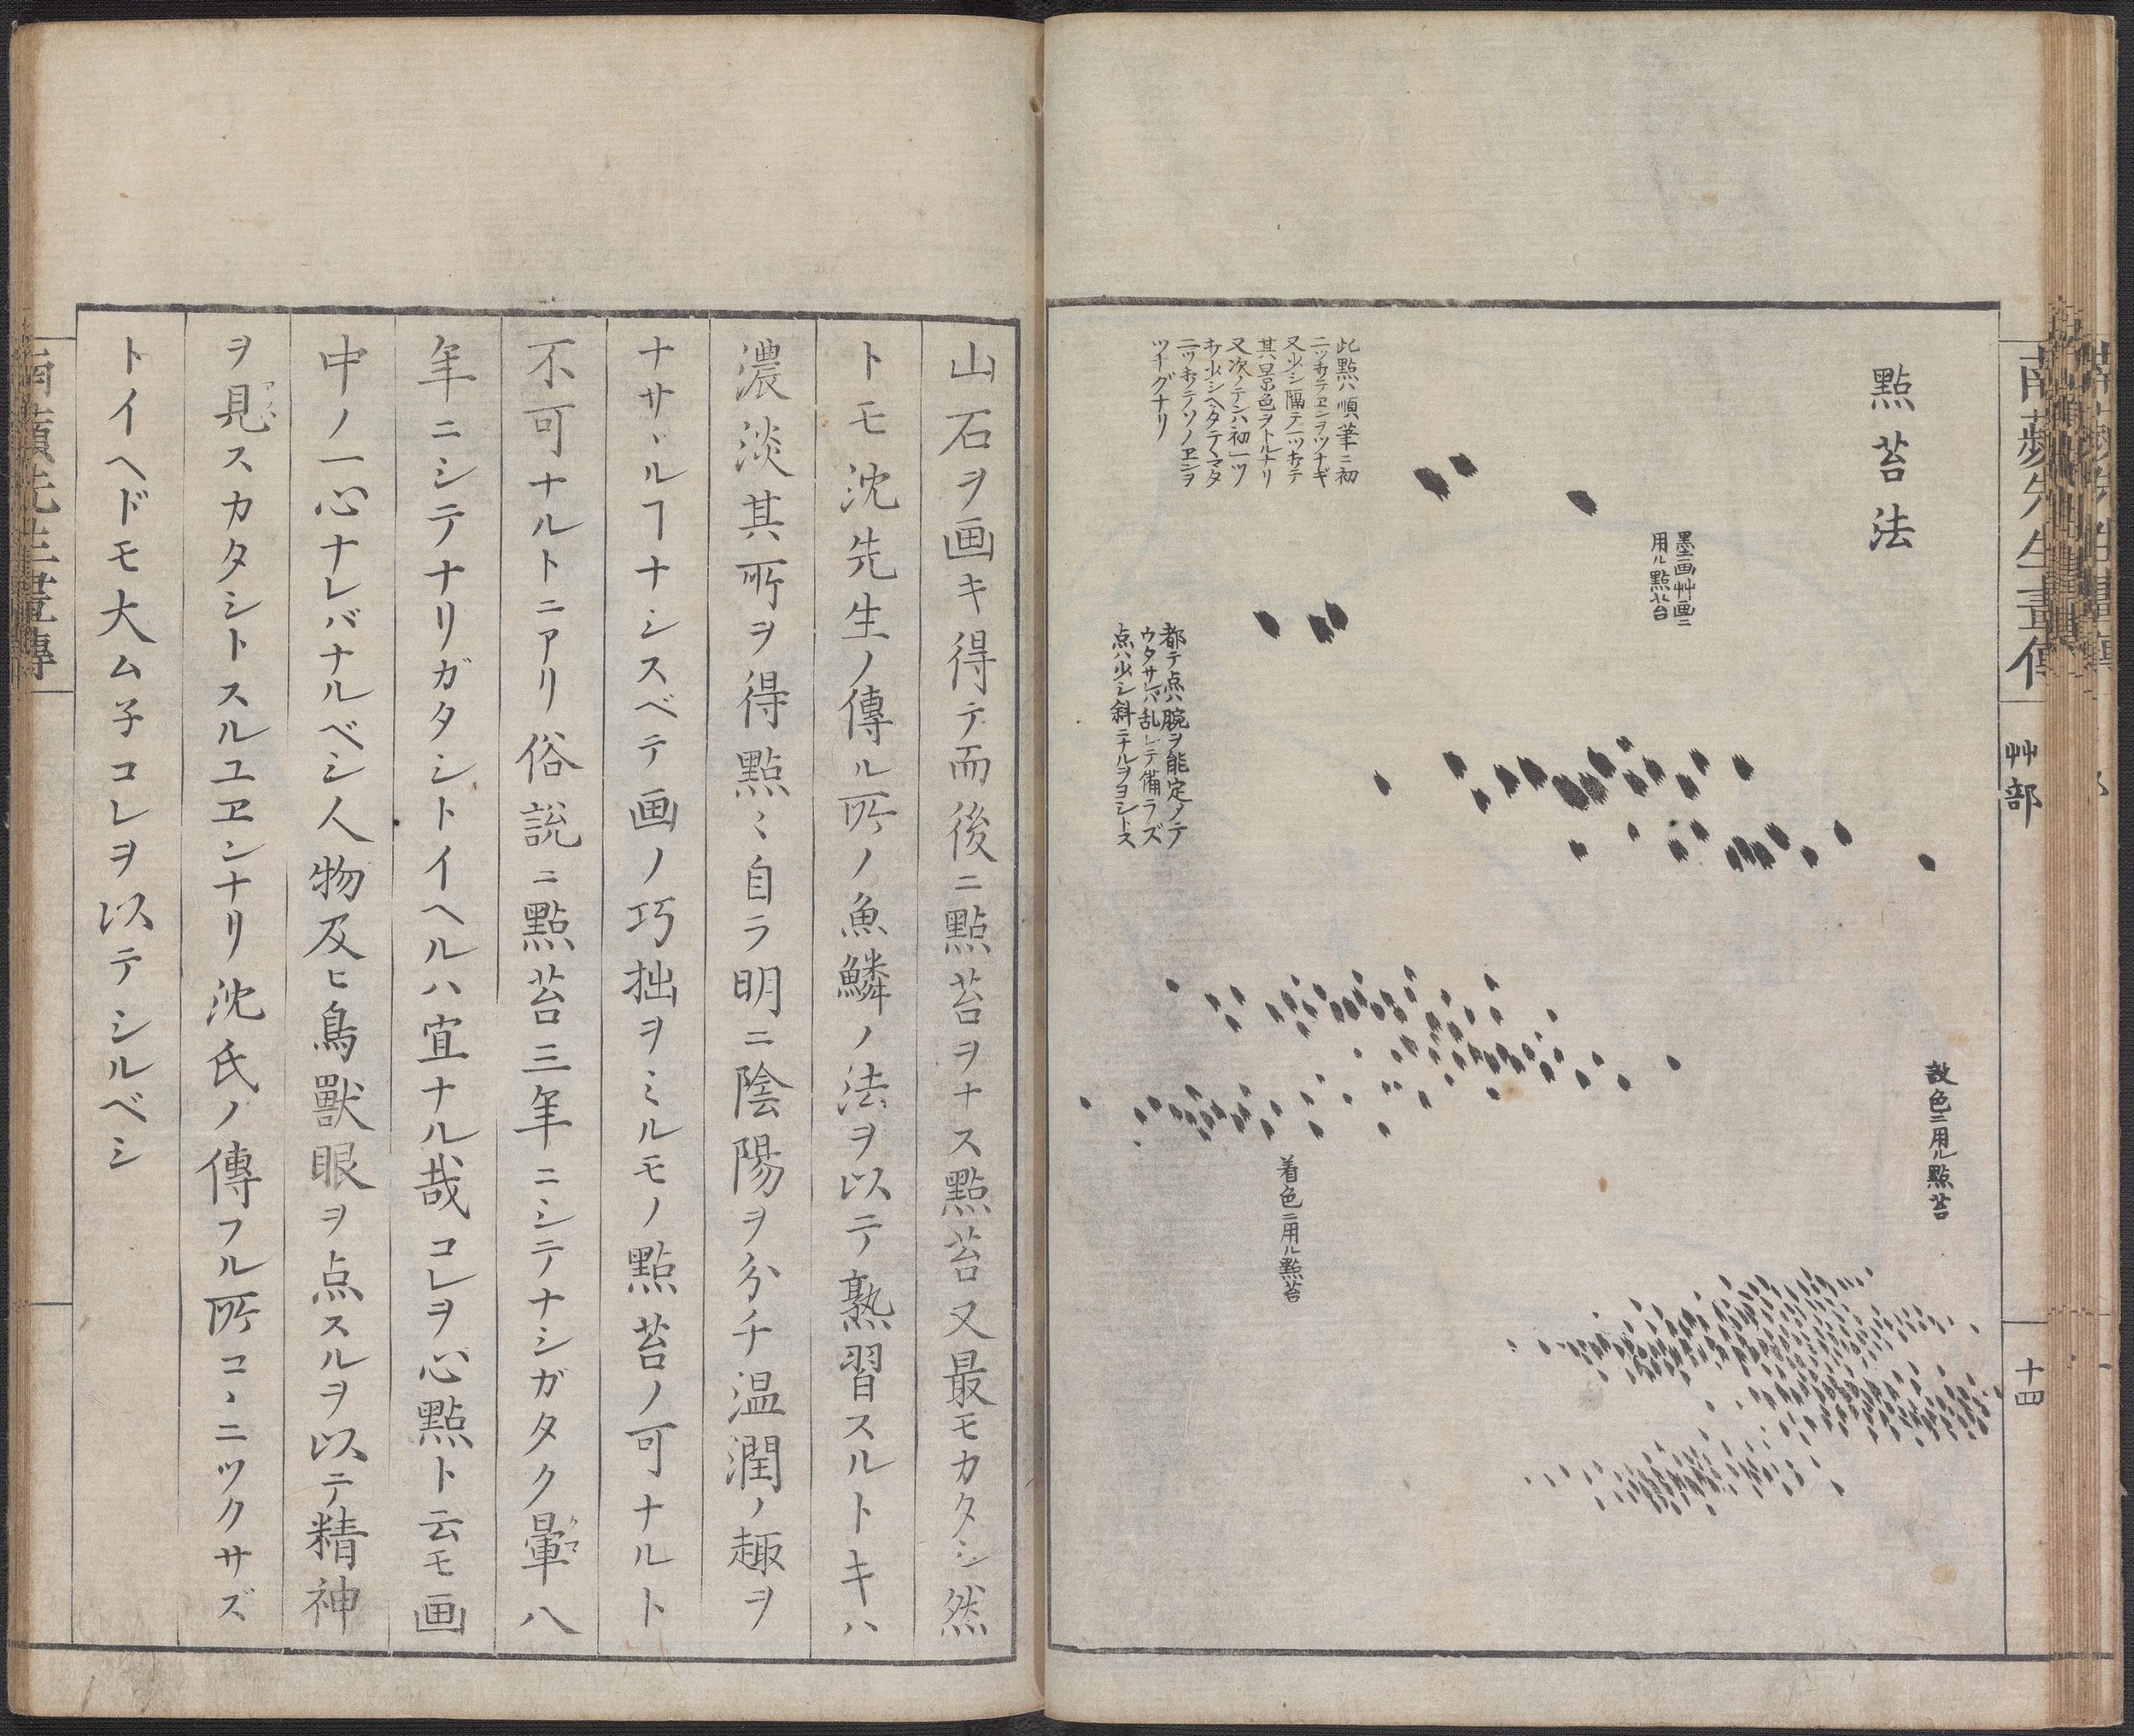 點苔法
墨画艸画ニ
用ル點苔
此點ハ順筆ニ初
二ツキテヱンヲツナギ
又少シ隔テ一ツキテ
其景色ヲトルナリ
又次ノテンハ初一ツ
キ少シヘタテヽマタ
二ツキテソノヱンヲ
ツナグナリ
都テ点ハ腕ヲ能定メテ
ウタサレバ乱レテ備ラズ
点ハ少シ斜ニナルヲヨシトス
設色ニ用ル點苔
着色ニ用ル點苔
南蘋先生畫傳
艸部
十四
山石ヲ画キ得テ而後ニ點苔ヲナス點苔又最モカタシ然
トモ沈先生ノ傳ル所ノ魚鱗ノ法ヲ以テ熟習スルトキハ
濃淡其所ヲ得點〻自ラ明ニ陰陽ヲ分チ温潤ノ趣ヲ
ナサヾルヿナシスベテ画ノ巧拙ヲミルモノ點苔ノ可ナルト
不可ナルトニアリ俗説ニ點苔三年ニシテナシガタク暈八
年ニシテナリガタシトイヘルハ宜ナル哉コレヲ心點ト云モ画
中ノ一心ナレバナルベシ人物及ヒ鳥獸眼ヲ点スルヲ以テ精神
ヲ見スカタシトスルユヱンナリ沈氏ノ傳フル所コヽニツクサズ
トイヘドモ大ム子コレヲ以テシルベシ
南蘋先生畫傳